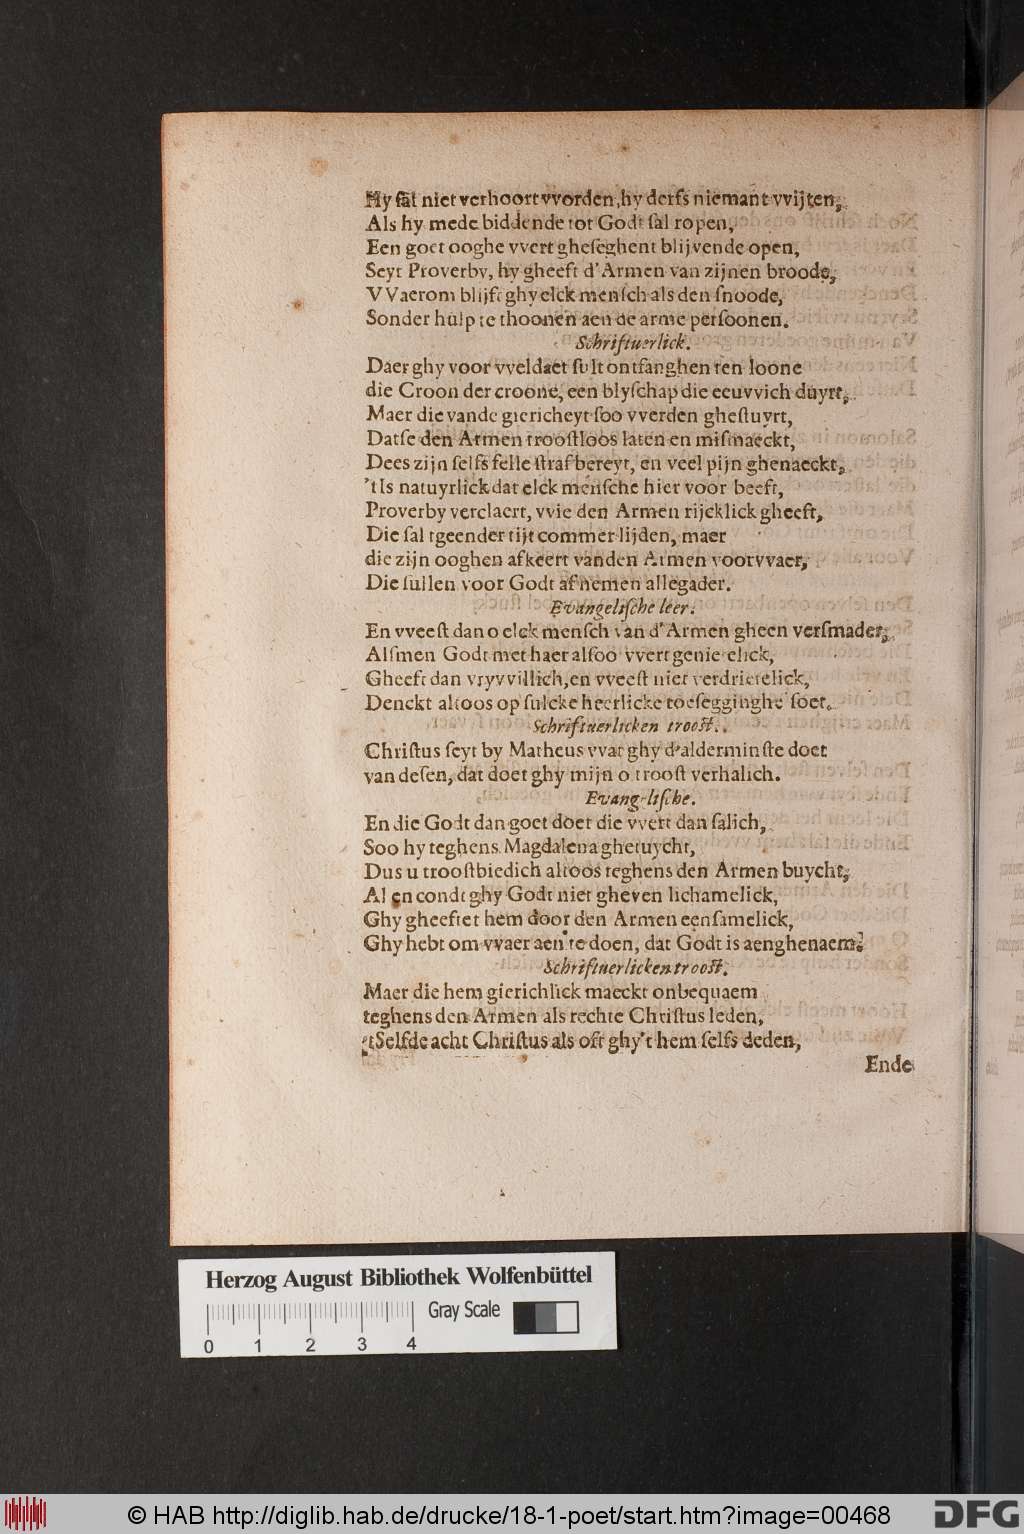 Hy ſal niet verhoort vvorden, hy derfs niemant vvijten,
Als hy mede biddende tot Godt ſal ropen,
Een goet ooghe vvert gheſeghent blijvende open,
Seyt Proverby, hy gheeft d'Armen van zijnen broode,
VVaerom blijft ghy elck menſch als den ſnoode,
Sonder hulp te thoonen aen de arme perſoonen.
Schriftuerlick.
Daer ghy voor vveldaet ſult ontfanghen ten loone
die Croon der croone, een blyſchap die eeuvvich duyrt,
Maer die vande giericheyt ſoo vverden gheſtuyrt,
Datſe den Armen trooſtloos laten en miſmaeckt,
Dees zijn ſelfs felle ſtraf bereyt, en veel pijn ghenaeckt,
'tIs natuyrlick dat elck menſche hier voor beeft,
Proverby verclaert, vvie den Armen rijcklick gheeft,
Die ſal tgeender tijt commer lijden, maer
die zijn ooghen afkeert vanden Armen voorvvaer,
Die ſullen voor Godt afnemen allegader.
Evangeliſche leer.
En vveeſt dan o elck menſch van d'Armen gheen verſmader,
Alſmen Godt met haer alſoo vvert genie elick,
Gheeft dan vryvvillich, en vveeſt niet verdrietelick,
Denckt altoos op ſulcke heerlicke toeſegginghe ſoet.
Schriftuerlicken trooſt.
Chriſtus ſeyt by Matheus vvat ghy d'alderminſte doet
van deſen, dat doet ghy mijn o trooſt verhalich.
Evangeliſche.
En die Godt dan goet doet die vvert dan ſalich,
Soo hy teghens Magdalena ghetuycht,
Dus u trooſtbiedich altoos teghens den Armen buycht,
Al en condt ghy Godt niet gheven lichamelick,
Ghy gheeftet hem door den Armen eenſamelick,
Ghy hebt om vvaer aen te doen, dat Godt is aenghenaem.
Schriftuerlicken trooſt.
Maer die hem gierichlick maeckt onbequaem
teghens den Armen als rechte Chriſtus leden,
tSelfde acht Chriſtus als oft ghy't hem ſelfs deden,
Ende
Herzog August Bibliothek Wolfenbüttel
Gray Scale
0 1 2 3 4
© HAB http://diglib.hab.de/drucke/18-1-poet/start.htm?image=00468
DFG